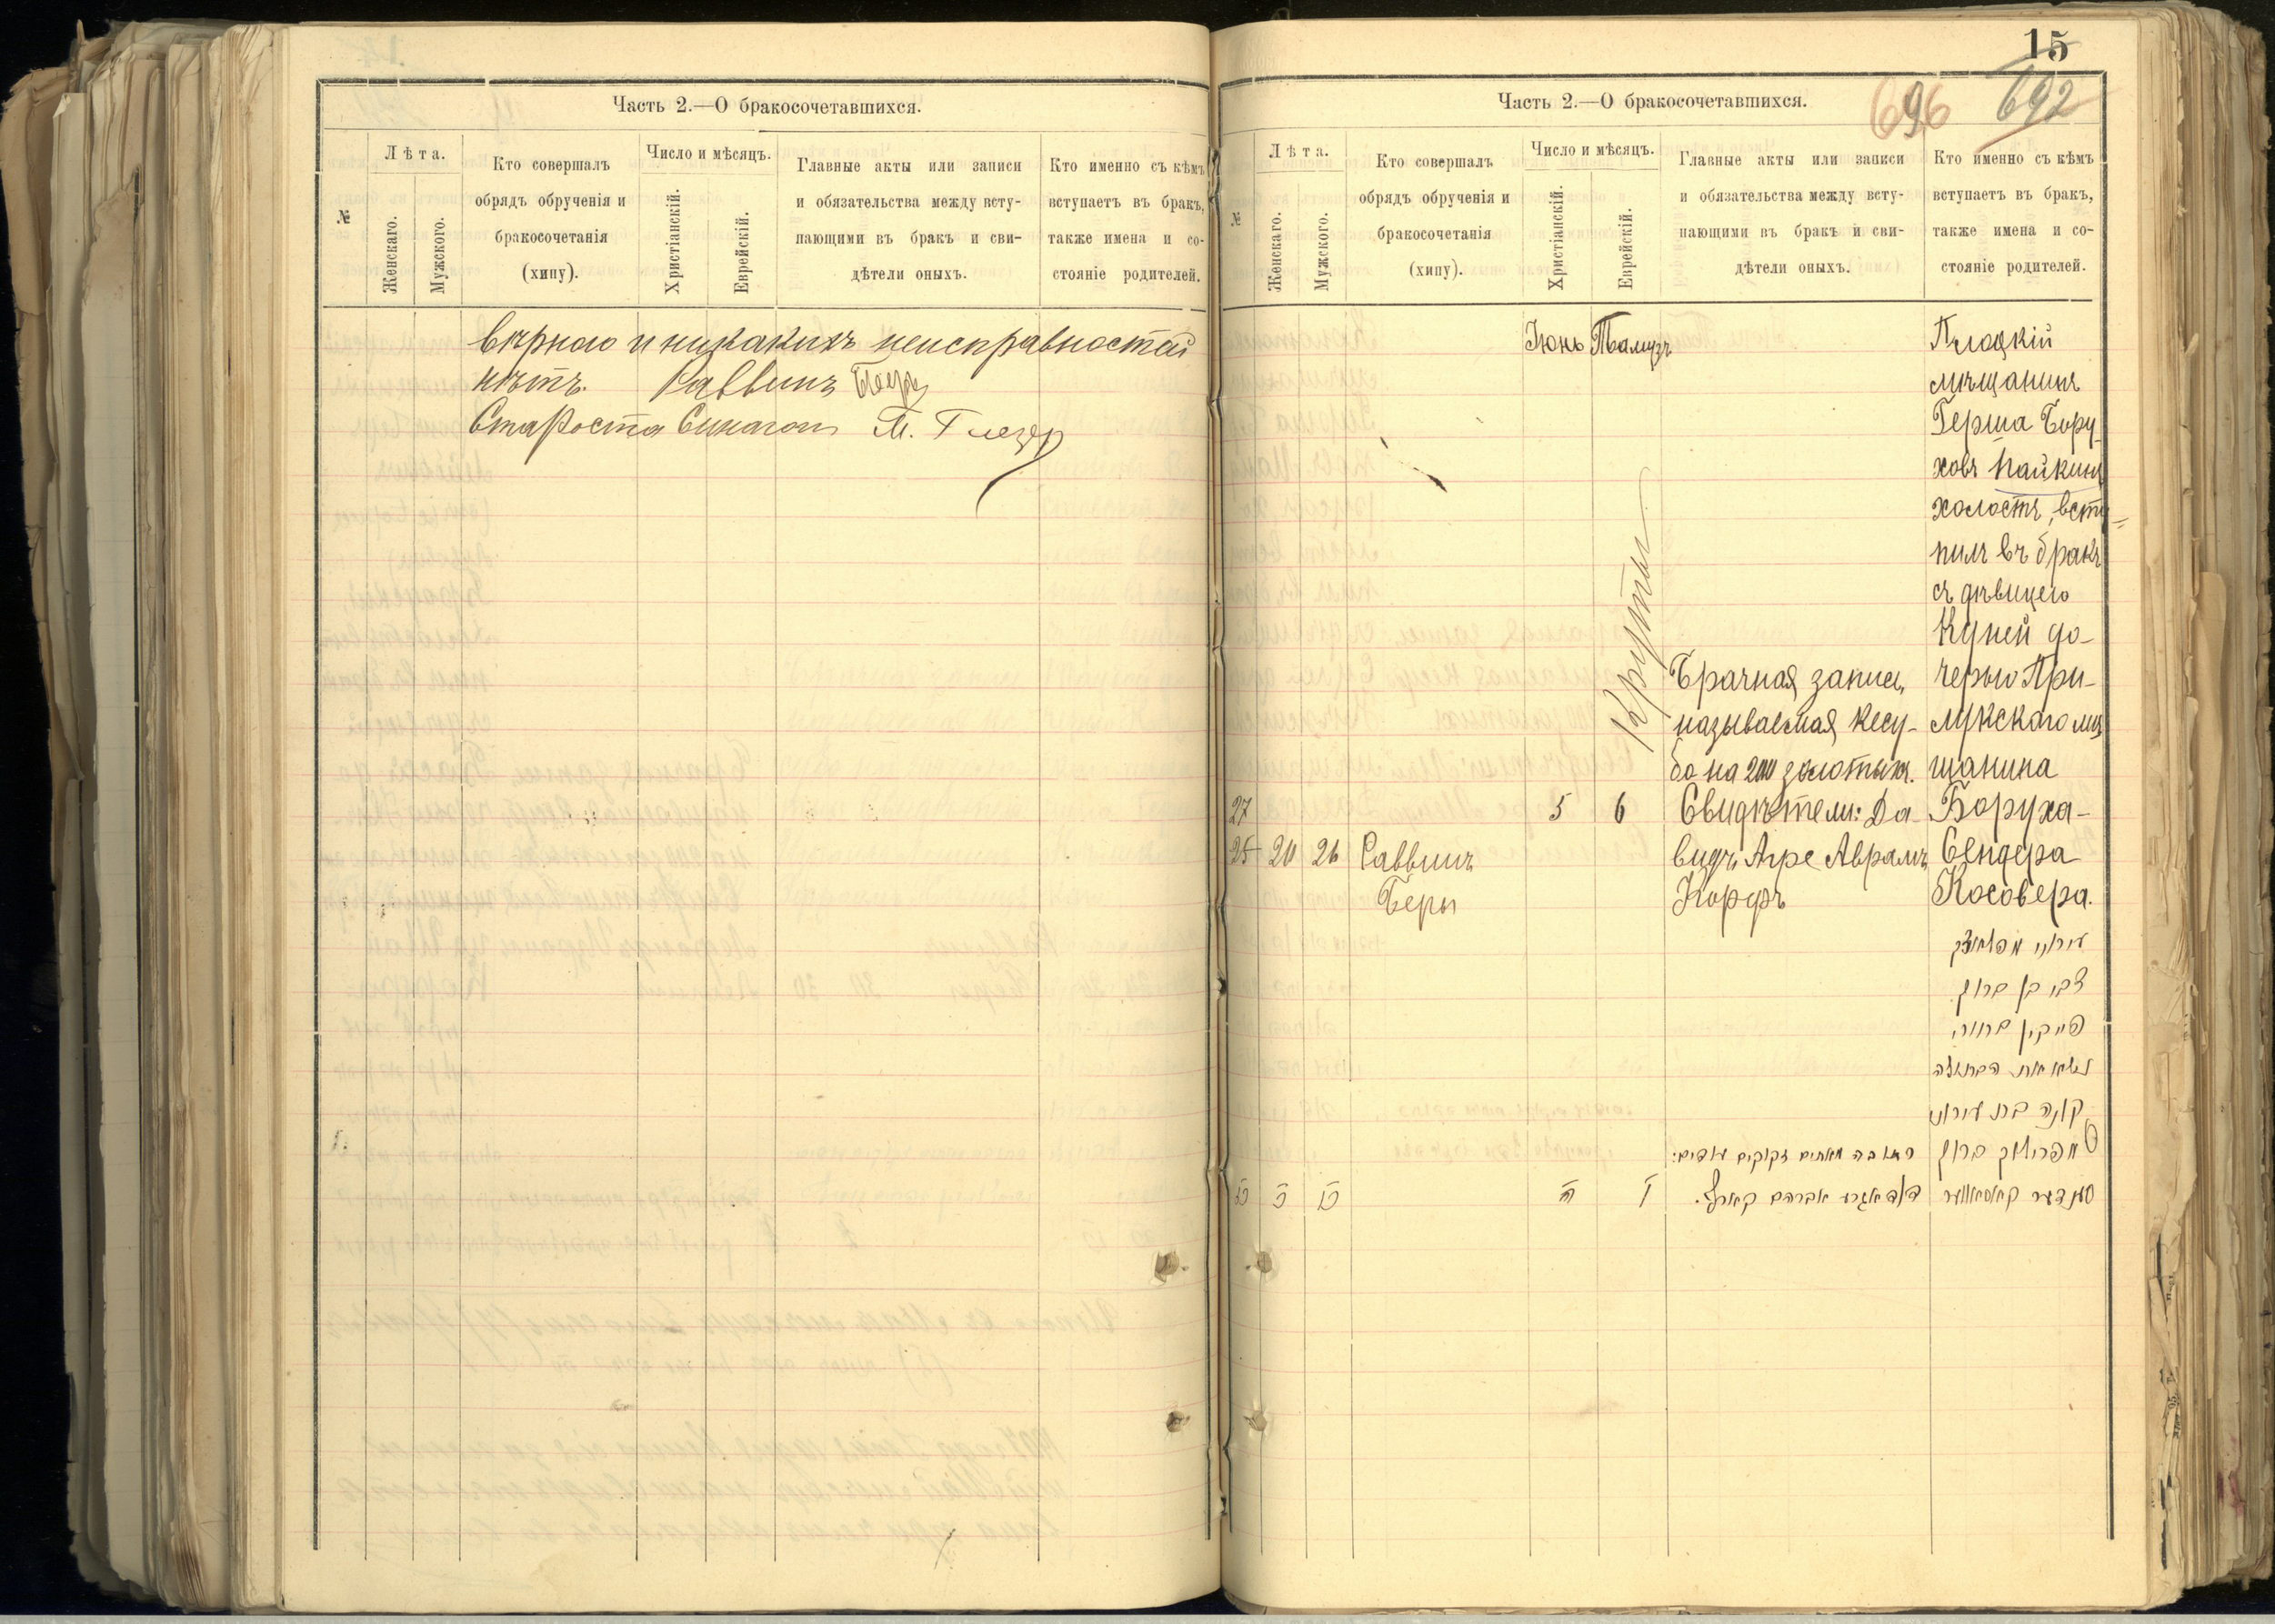 Часть 2.—О бракосочетавшихся.
№
Лѣта.
Женскаго.
Мужского.
Кто совершалъ
обрядъ обрученія и
бракосочетанія
(хипу).
Число и мѣсяцъ.
Христіанскій.
Еврейскій.
Главные акты или записи
и обязательства между всту-
пающими въ бракъ и сви-
дѣтели оныхъ.
Кто именно съ кѣмъ
вступаетъ въ бракъ,
также имена и со-
стояніе родителей.
вѣрною и никакихъ неисправностей
нѣтъ. Раввинъ
Староста Синагоги М. Глезер
15
696 692
Часть 2.—О бракосочетавшихся.
№
Лѣта.
Женскаго.
Мужского.
Кто совершалъ
обрядъ обрученія и
бракосочетанія
(хипу).
Число и мѣсяцъ.
Христіанскій.
Еврейскій.
Главные акты или записи
и обязательства между всту-
пающими въ бракъ и сви-
дѣтели оныхъ.
Кто именно съ кѣмъ
вступаетъ въ бракъ,
также имена и со-
стояніе родителей.
27
25 20 26
Раввинъ
Беры
Іюнь Тамузъ
5 6
Круты
Брачная запись,
называемая кесу-
ба на 200 золотыхъ.
Свидѣтели: Да-
видъ Агре Аврамъ
Корфъ
Плоцкій
мѣщанинъ
Герша Бору-
ховъ Пайкинъ
холостъ, всту-
пилъ въ бракъ
съ дѣвицею
Куней до-
черью При-
лукскаго мѣ
щанина
Боруха-
Сендера
Косовера.
צבי בן ברוך
פייקין בחור
נשא את הבתולה
קונה בת עירוני
מפרילוק ברוך
סענדער קאסאווער
כתובה מאתים זקוקים
דוד אגרע אברהם קארף.
כה כ כו ה ו